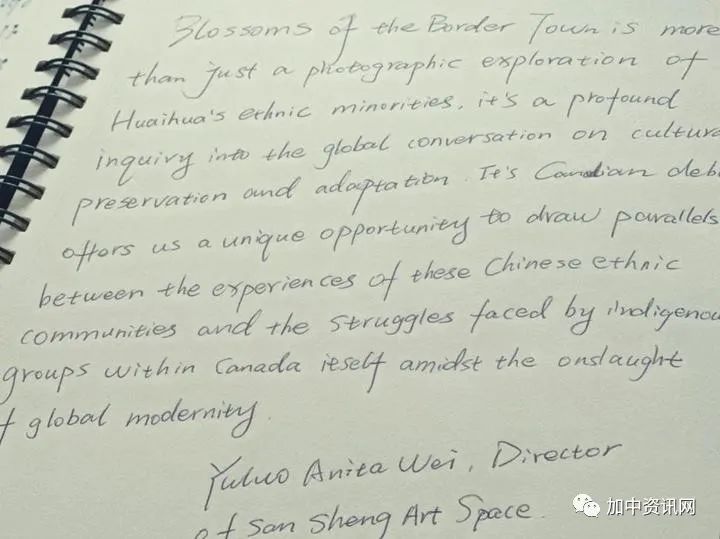 Blossoms of the Border Town is more
than just a photographic exploration of
Huaihua's ethnic minorities, it's a profound
inquiry into the global conversation on cultura
preservation and adaptation. It's Candian deb
offers us a unique opportunity to draw parallels
between the experiences of these Chinese ethnic
communities and the struggles faced by indigenou
groups within Canada itself amidst the onslaught
f global modernity.
Yuluo Anita Wei, Director
of San Sheng Art Space.
加中资讯网